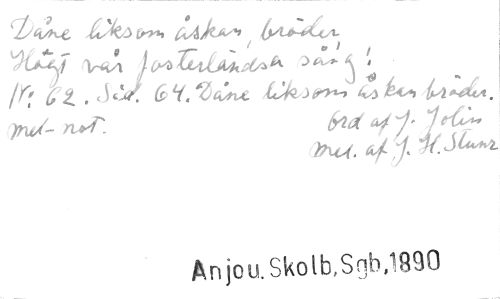 Dåne liksom åskan, bröder
Högt vår fosterländska sång!
Nr: 62. Sid. 64. Dåne liksom åskan bröder.
mel-not. Ord af J. Jolin
mel. af J. H. Stunz
Anjou. Skolb, Sgb, 1890